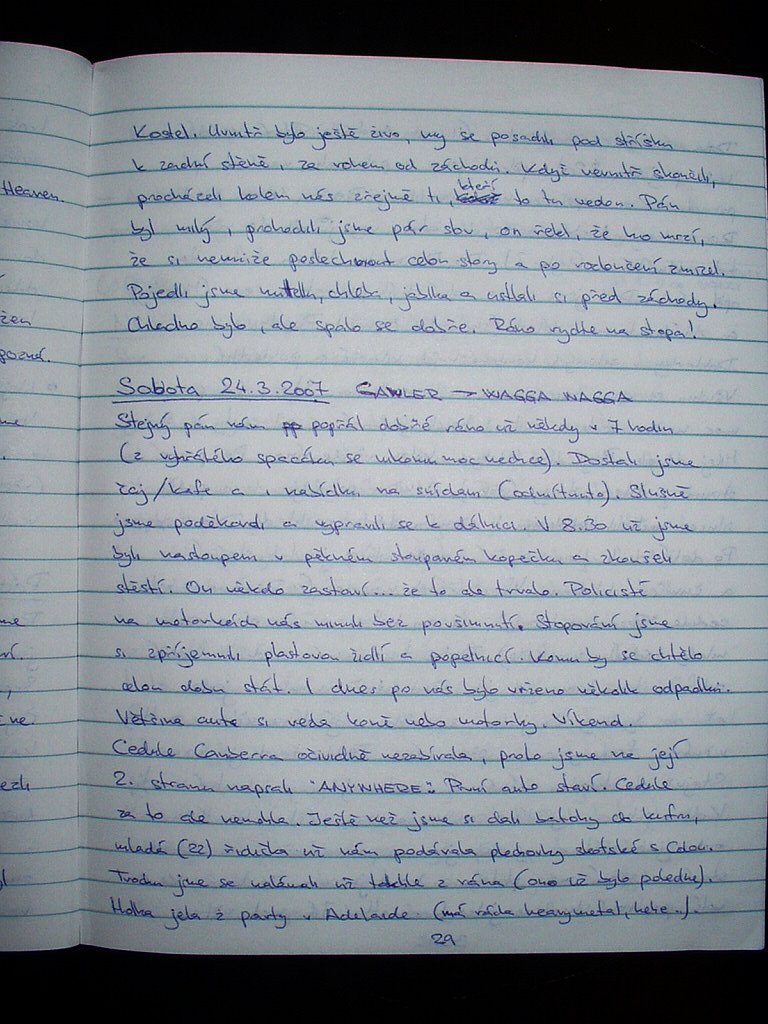 Heaven.
žen
pozná.
Kostel. Uvnitř bylo ještě živo, my se posadili pod stříšku
k zadní stěně, za rohem od záchodů. Když uvnitř skončili,
procházeli kolem nás zřejmě ti, kteří to tu vedou. Pán
byl milý, prohodili jsme pár slov, on řekl, že ho mrzí,
že si nemůže poslechnout celou story a po rozloučení zmizel.
Pojedli jsme nutellu, chleba, jablka a ustlali si před záchody.
Chladno bylo, ale spalo se dobře. Ráno rychle na stopa!
Sobota 24.3.2007 GAWLER → WAGGA WAGGA
Stejný pán nám popřál dobré ráno už někdy v 7 hodin
(z vyhřátého spacáku se nikomu moc nechce). Dostali jsme
čaj/kafe a i nabídku na snídani (odmítnuto). Slušně
jsme poděkovali a vypravili se k dálnici. V 8.30 už jsme
byli nastoupeni v pěkném stoupavém kopečku a zkoušeli
štěstí. On někdo zastaví... že to ale trvalo. Policisté
na motorkách nás minuli bez povšimnutí. Stopování jsme
si zpříjemnili plastovou židlí a popelnicí. Komu by se chtělo
celou dobu stát. I dnes po nás bylo vrženo několik odpadků.
Většina aut si veze koně nebo motorky. Víkend.
Cedule Canberra očividně nezabírala, proto jsme na její
2. stranu napsali "ANYWHERE". První auto staví. Cedule
za to ale nemohla. Ještě než jsme si dali batohy do kufru,
mladá (22) řidička už nám podávala plechovky skotské s Colou.
Trochu jsme se nalámali už takhle z rána (ono už bylo poledne).
Holka jela z party v Adelaide (má ráda heavymetal, hehe..).
29